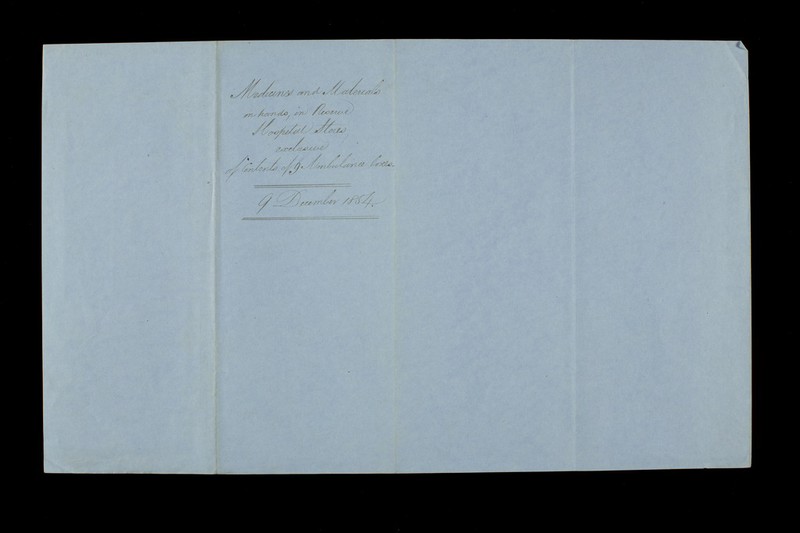 Medicines and Materials
on hands, in Reserve
Hospital Stores
exclusive
of Contents of 9 Ambulance boxes.
9 December 1854.